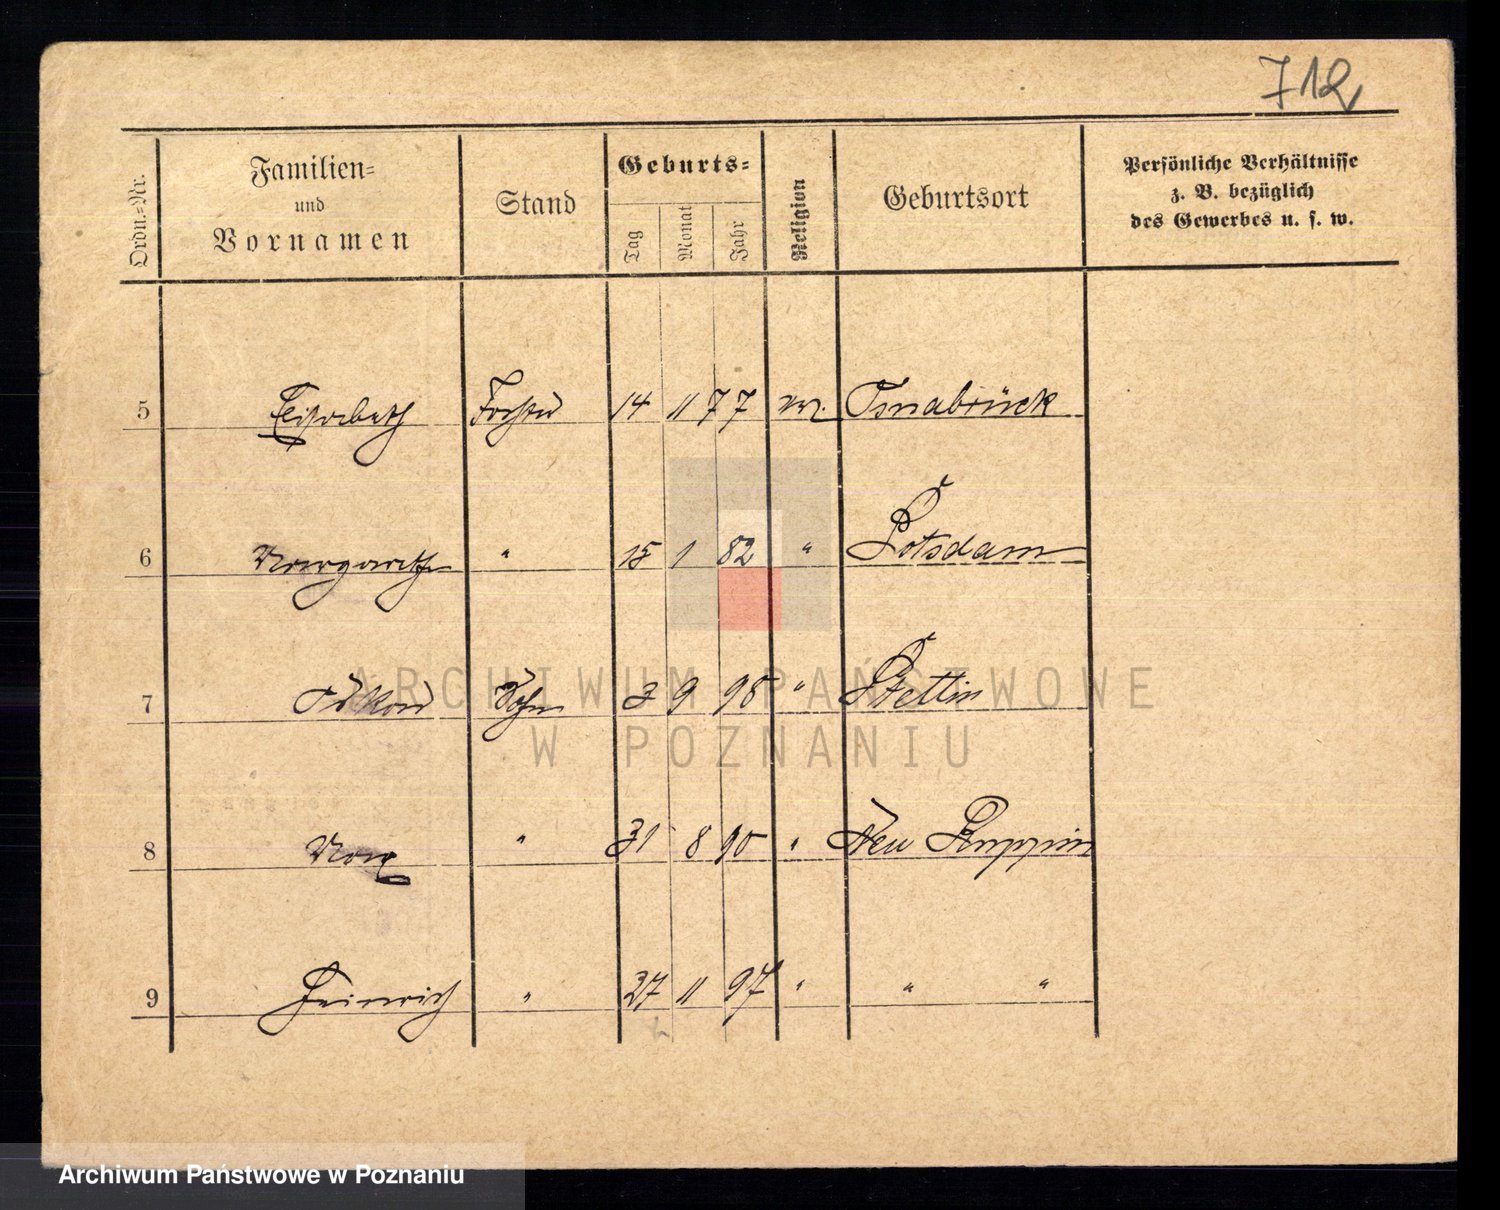 712
Ordn.-Nr. Familien- und Vornamen Stand Geburts- Tag Monat Jahr Religion Geburtsort Persönliche Verhältnisse z. B. bezüglich des Gewerbes u. s. w.
5 Elisabeth Tochter 14 11 77 Osnabrück
6 Margarethe " 15 1 82 " Potsdam
7 Sohn 3 9 " Stettin
8 Max " 31 8 90 " Neu Ruppin
9 Heinrich " 27 11 97 " " "
ARCHIWUM PAŃSTWOWE
W POZNANIU
Archiwum Państwowe w Poznaniu